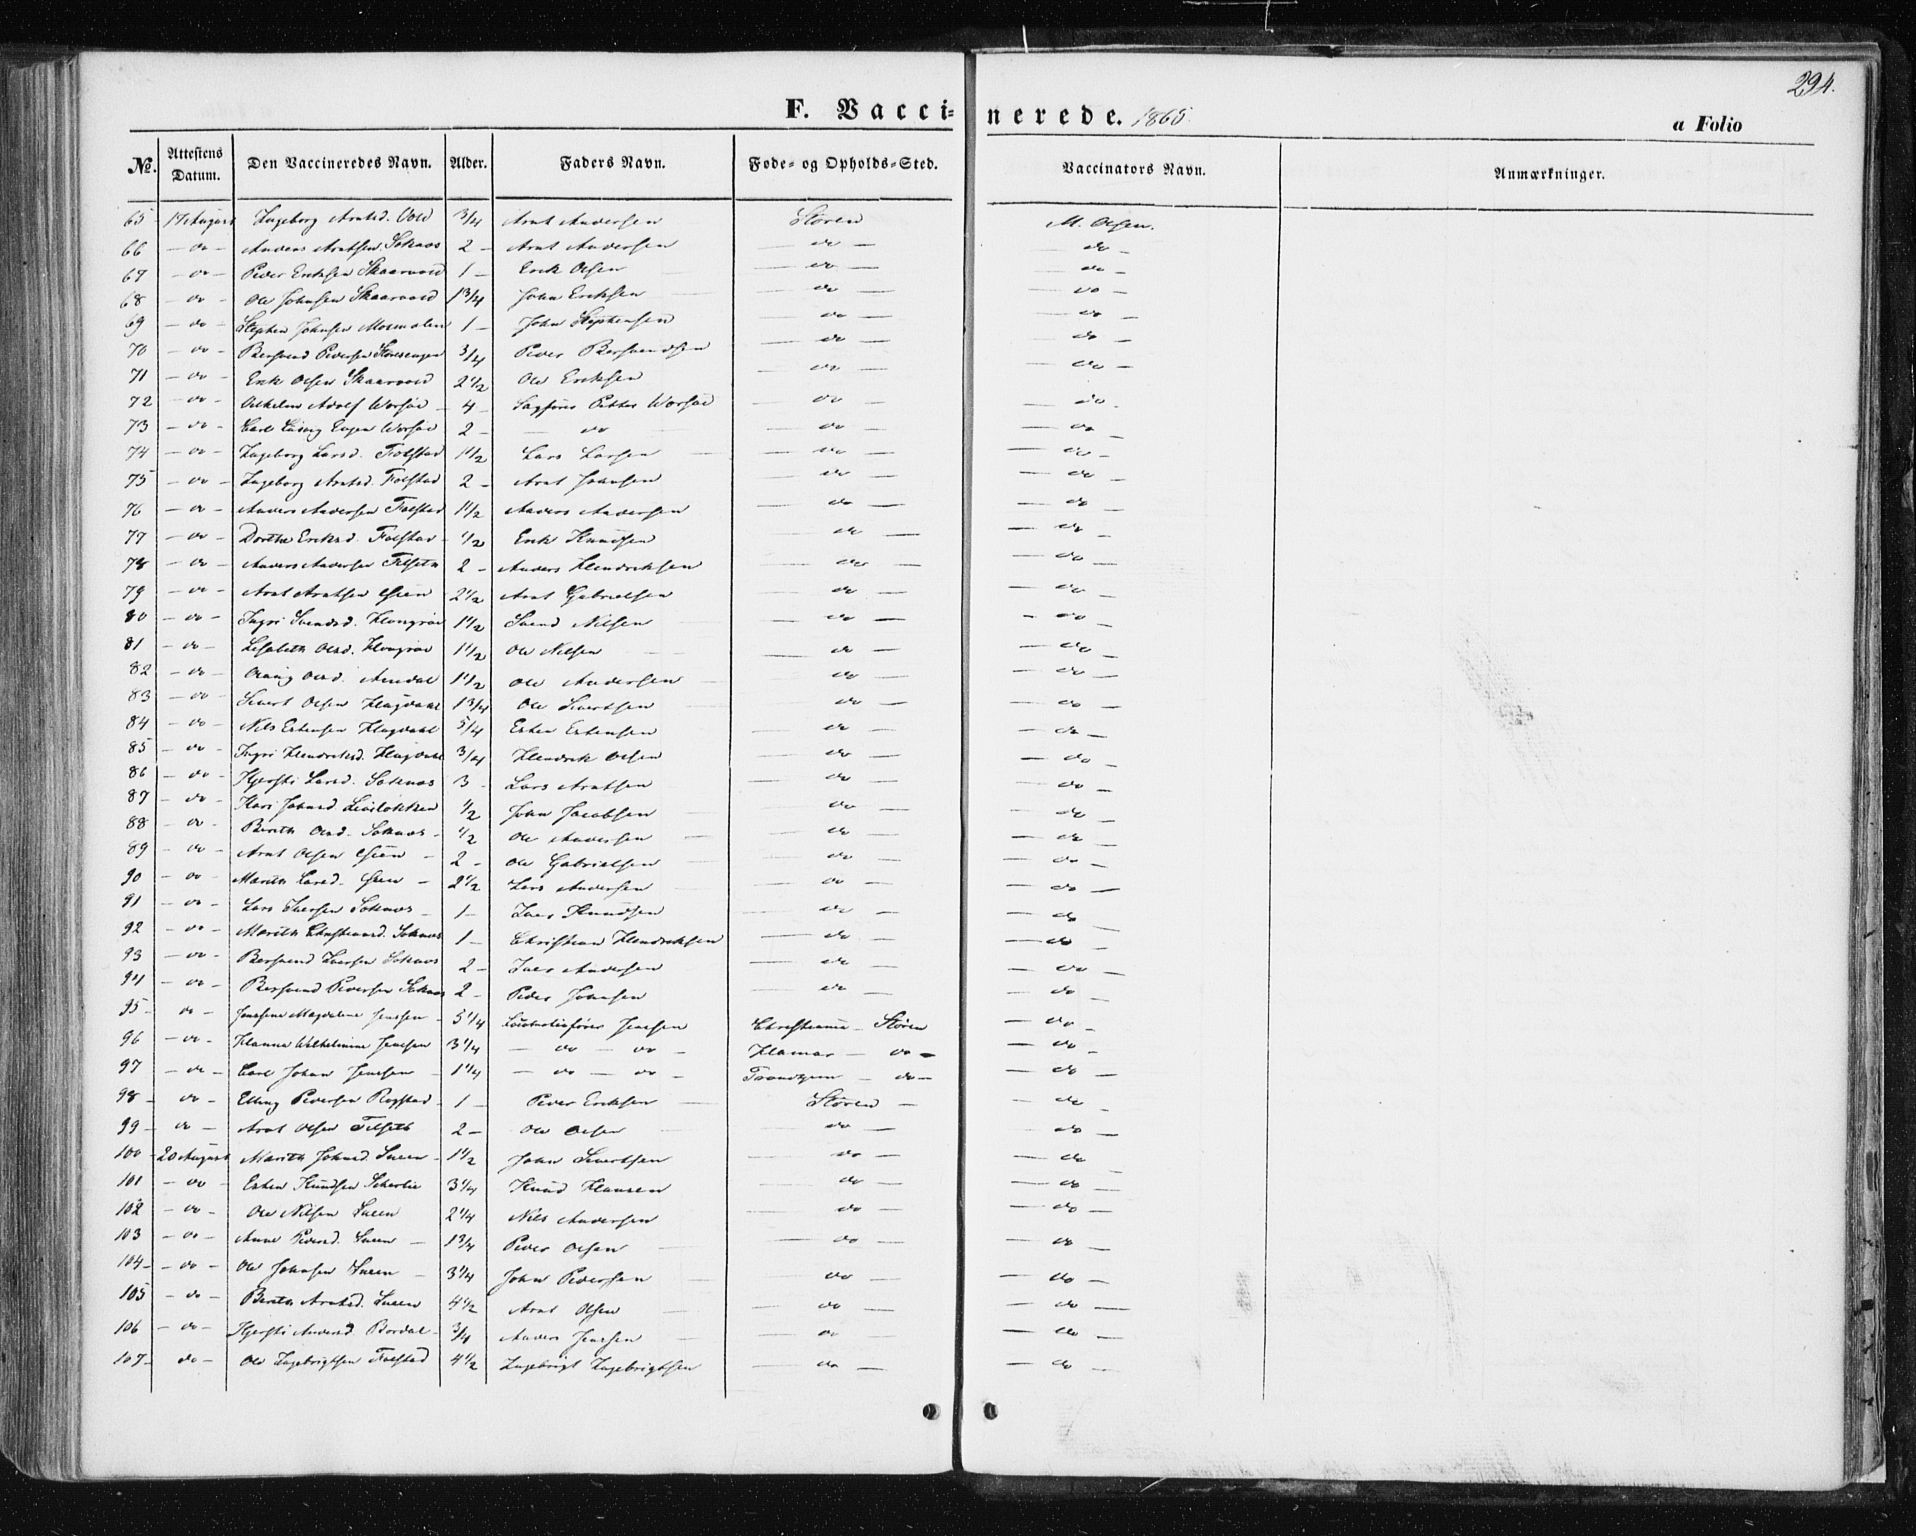 294.
F. Vaccinerede. 1865
a Folio
No. Attestens Datum. Den Vaccineredes Navn. Alder. Faders Navn. Føde- og Opholds-Sted. Vaccinators Navn. Anmærkninger.
65 - 17 August Ingeborg Arntsd. 3/4 Arnt Andersen Støren M. Olsen.
66 - do - Anders Arntsen Soknæs 2 - Arnt Andersen - do - - do -
67 - do - Peder Eriksen Skaarvold 1 - Erik Olsen - do - - do -
68 - do - Ole Johnsen Skaarvold 1 3/4 John Eriksen - do - - do -
69 - do - Stephen Johnsen Moemalen 1 - John Stephensen - do - - do -
70 - do - Bersvend Pedersen Storesengen 3/4 Peder Bersvendsen - do - - do -
71 - do - Erik Olsen Skaarvold 2 1/2 Ole Eriksen - do - - do -
72 - do - Vilhelm Adolf Worsøe - 4 - Sagfører Petter Worsøe - do - - do -
73 - do - Carl Worsøe 2 - - do - do - - do -
74 - do - Ingeborg Larsd. Folstad 1 1/2 Lars Larsen - do - - do -
75 - do - Ingeborg Arntsd. Folstad 2 - Arnt Johnsen - do - - do -
76 - do - Anders Andersen Folstad 1 1/2 Anders Andersen - do - - do -
77 - do - Dorthe Eriksd. Folstad - 1/2 Erik Knudsen - do - - do -
78 - do - Anders Andersen Filseth 2 - Anders Hendriksen - do - - do -
79 - do - Arnt Arntsen Øien 2 1/2 Arnt Gabrielsen - do - - do -
80 - do - Ingri Svendsd. Hongrøe 1 1/2 Svend Nilsen - do - - do -
81 - do - Lisabeth Olsd. Hongrøe 1 1/2 Ole Nilsen - do - - do -
82 - do - Olsd. 1 1/2 Ole Andersen - do - - do -
83 - do - Sivert Olsen Hugdaal 1 3/4 Ole Sivertsen - do - - do -
84 - do - Nils Estensen Hugdaal 5/4 Esten Estensen - do - - do -
85 - do - Ingri Hendriksd. Hugdaal 3/4 Hendrik Olsen - do - - do -
86 - do - Kjersti Larsd. Soknæs 3 - Lars Arntsen - do - - do -
87 - do - Kari Johnsd. 1/2 John Jacobsen - do - - do -
88 - do - Berith Olsd. Soknæs - 1/2 Ole Andersen - do - - do -
89 - do - Arnt Olsen Øien - 2 - Ole Gabrielsen - do - - do -
90 - do - Marith Larsd. Øien - 2 1/2 Lars Andersen - do - - do -
91 - do - Lars Iversen Soknæs - 1 - Iver Knudsen - do - - do -
92 - do - Marith Christiansd. Soknæs 1 - Christian Hendriksen - do - - do -
93 - do - Bersvend Iversen Soknæs 2 - Iver Andersen - do - - do -
94 - do - Bersvend Pedersen Soknæs 2 - Peder Johnsen - do - - do -
95 - do - Jensine Magdalene Jenssen - 5 1/4 Locomotivfører Jenssen Christiania - Støren - do -
96 - do - Hanna Wilhelmine Jenssen 3 1/4 - do - do - Hamar - do - - do -
97 - do - Carl Johan Jenssen - 1 1/4 - do - do - Trondhjem - do - - do -
98 - do - Elling Pedersen Rogstad - 1 - Peder Eriksen Støren - - do -
99 - do - Arnt Olsen Filseth 2 - Ole Olsen - do - - do -
100 - 20 August Marith Johnsd. Sneen - 1 1/2 John Sivertsen - do - - do -
101 - do - Esten Knudsen 3 1/4 Knud Hansen - do - - do -
102 - do - Ole Nilsen Sneen 2 1/4 Nils Andersen - do - - do -
103 - do - Anne Pedersd. Sneen - 1 3/4 Peder Olsen - do - - do -
104 - do - Ole Johnsen Sneen - 3 1/4 John Pedersen - do - - do -
105 - do - Berith Arntsd. Sneen 4 1/2 Arnt Olsen - do - - do -
106 - do - Kjersti Andersd. Bordal - 3/4 Anders Jenssen - do - - do -
107 - do - Ole Ingebrigtsen Folstad 4 1/2 Ingebrigt Ingebrigtsen - do - - do -